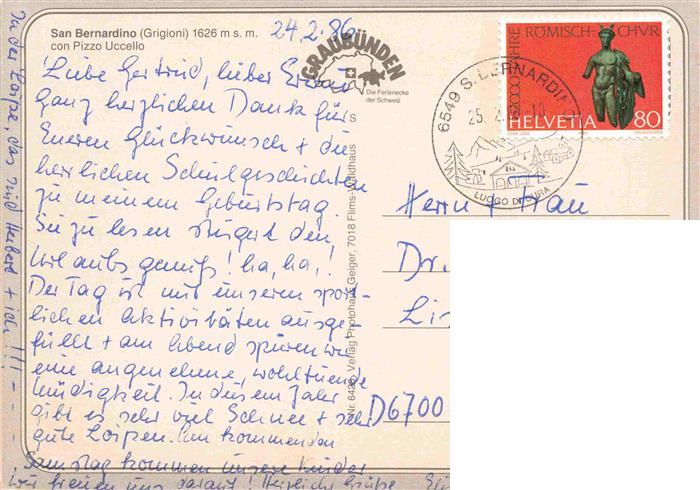 San Bernardino (Grigioni) 1626 m s. m.
con Pizzo Uccello
24.2.86
GRAUBÜNDEN
Die Ferienecke
der Schweiz
Liebe Gertrud, lieber Erwin
Ganz herzlichen Dank für
Eueren Glückwunsch + die
herrlichen Schulgeschichten
zu meinem Geburtstag.
Sie zu lesen steigert den
Urlaubsgenuß! ha, ha,!
Der Tag ist mit unseren sport-
lichen Aktivitäten ausge-
füllt + am Abend spüren wir
eine angenehme, wohltuende
Müdigkeit. In diesem Jahr
gibt es sehr viel Schnee + sehr
gute Loipen. Am kommenden
Samstag kommen unsere Kinder
wir freuen uns darauf! Herzliche Grüße
In der Loipe, das sind Herbert + ich !!! - - - -
Verlag Photohaus Geiger, 7018 Flims-Waldhaus
2000 JAHRE RÖMISCH-CHUR
HELVETIA 80
6549 S. BERNARDINO
25. 2.
LUOGO DI CURA
Herrn + Frau
Dr.
D6700